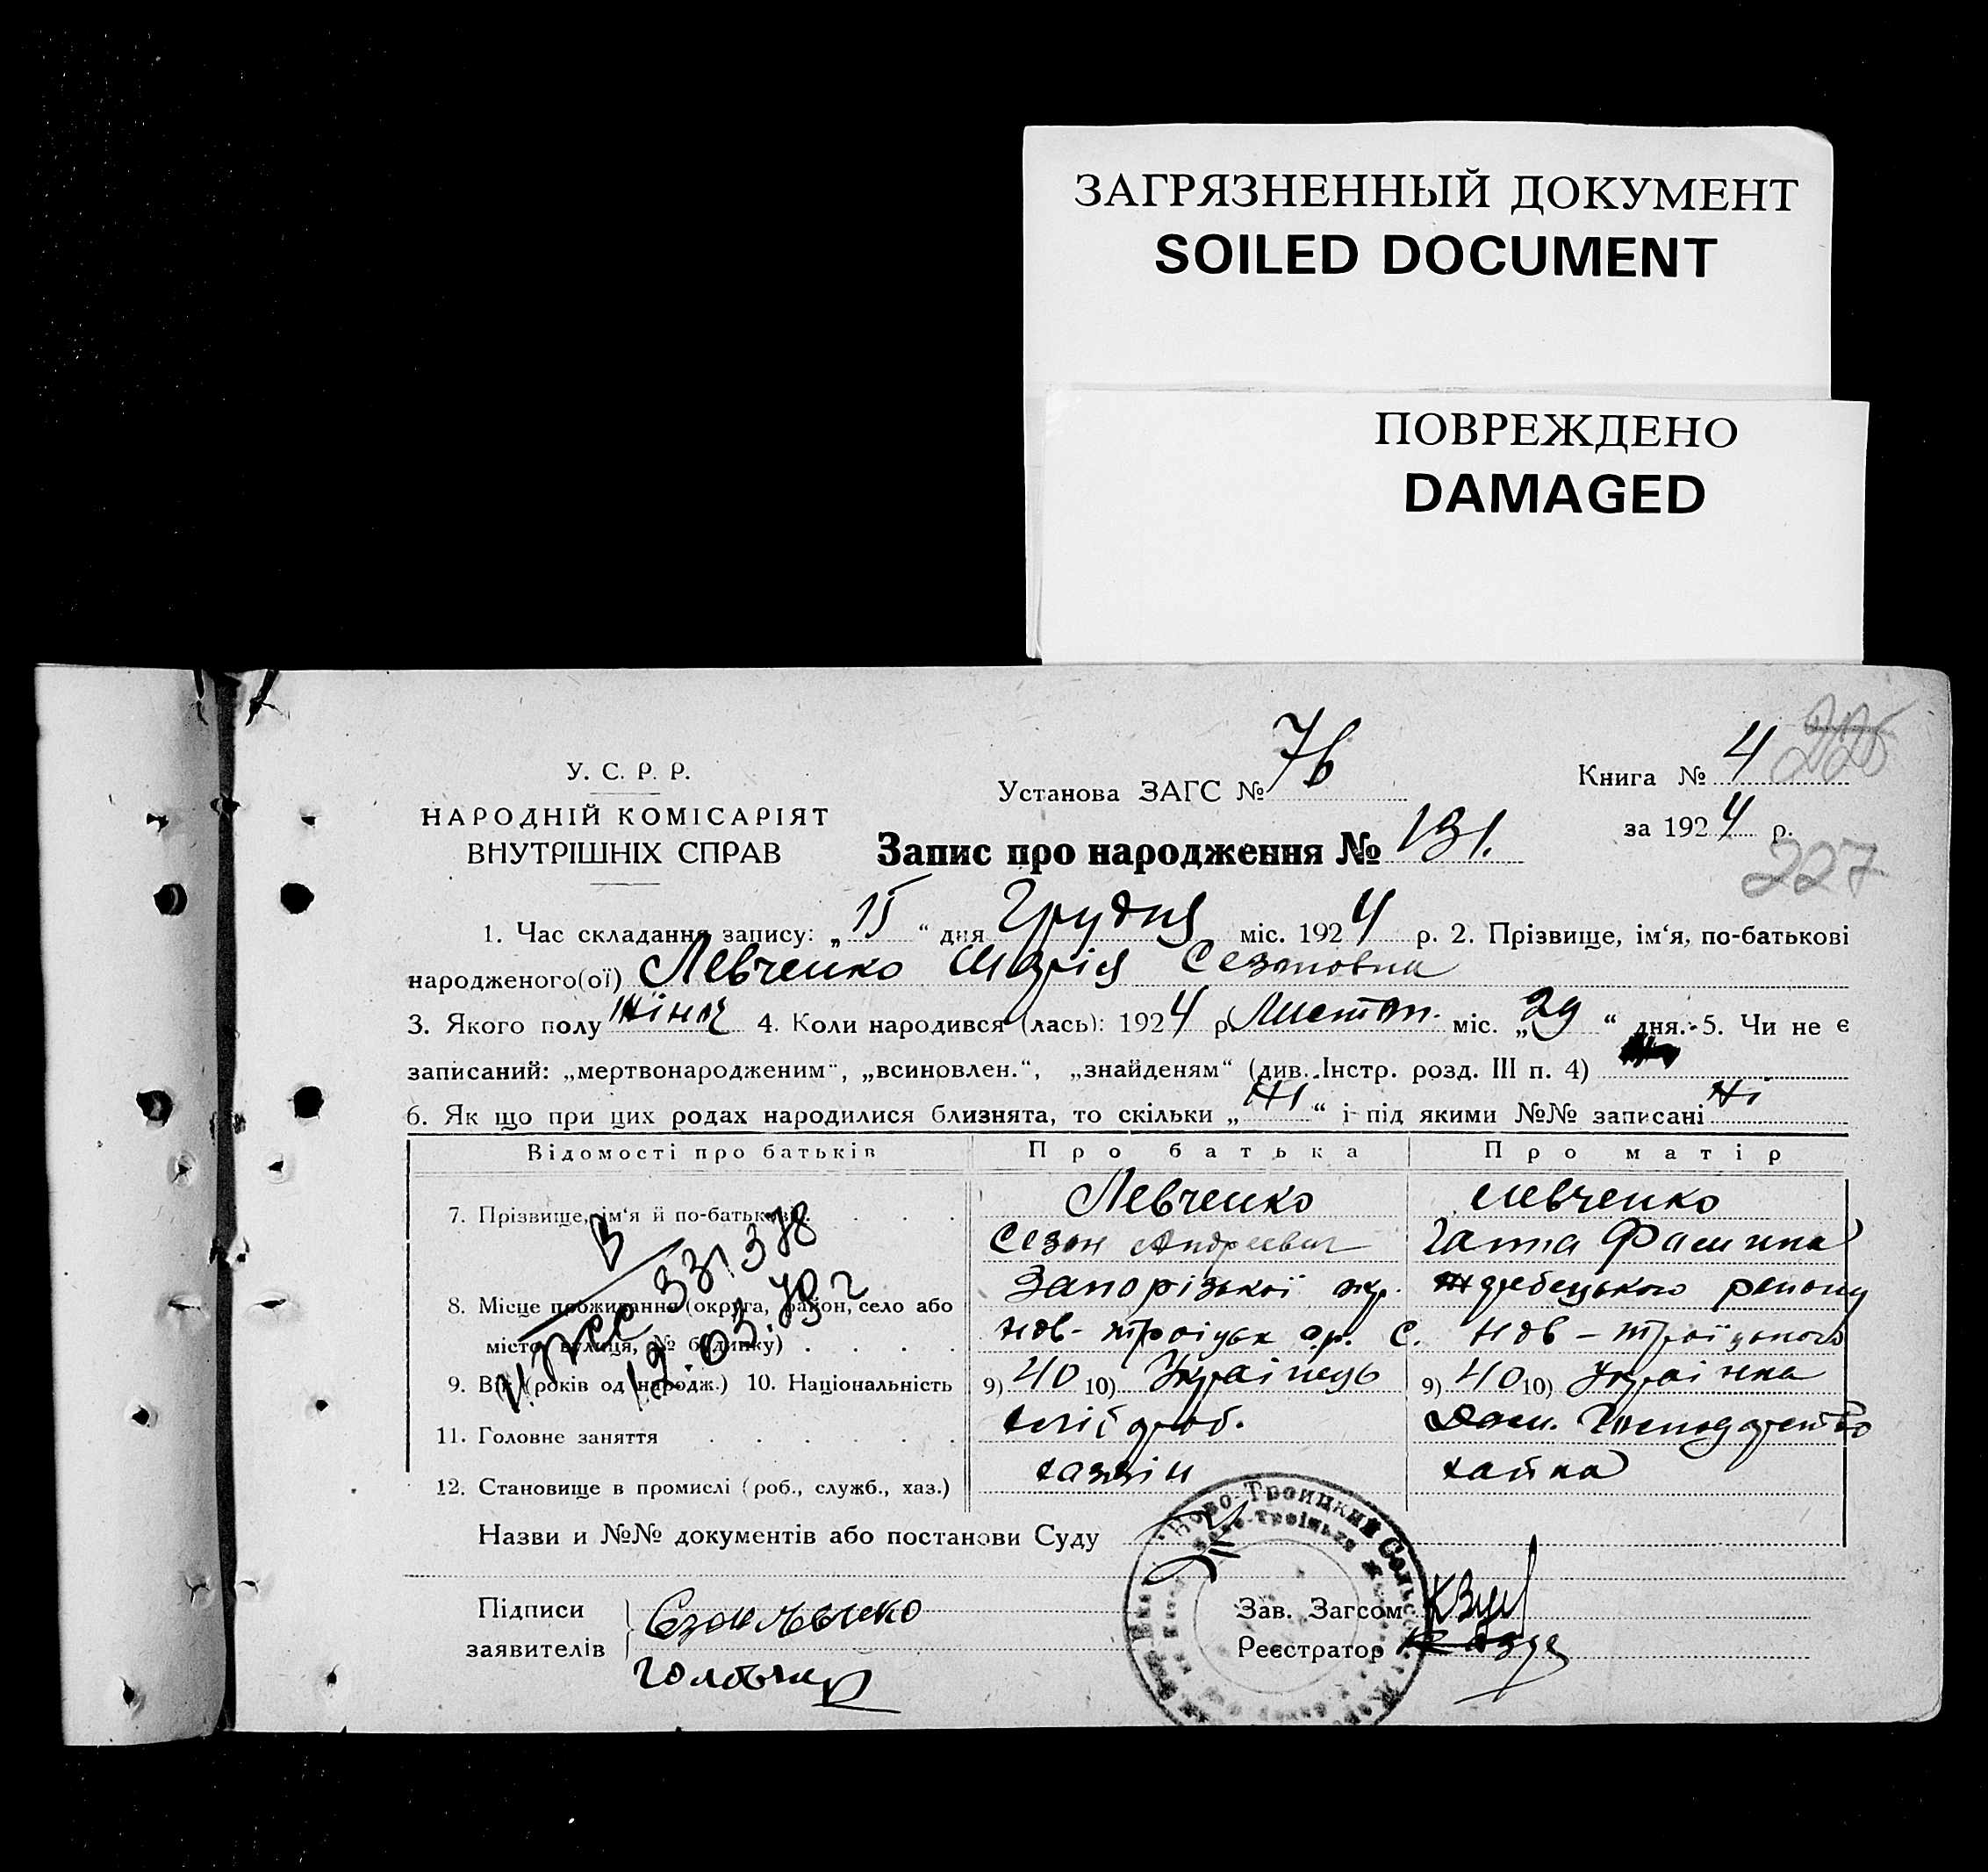 ЗАГРЯЗНЕННЫЙ ДОКУМЕНТ
SOILED DOCUMENT
ПОВРЕЖДЕНО
DAMAGED
У. С. Р. Р.
НАРОДНІЙ КОМІСАРІЯТ
ВНУТРІШНІХ СПРАВ
Установа ЗАГС № 76
Книга № 4 226
за 1924 р.
Запис про народження № 131.
227
1. Час складання запису: „15“ дня Грудня міс. 1924 р. 2. Прізвище, ім‘я, по-батькові
народженого(ої) Левченко Марія Сезоновна
3. Якого полу жіноч 4. Коли народився (лась): 1924 р. Листоп. міс. „29“ дня.-5. Чи не є
записаний: „мертвонародженим“, „всиновлен.“, „знайденям“ (див. Інстр. розд. III п. 4)
6. Як що при цих родах народилися близнята, то скільки „Ні“ і під якими №№ записані Ні
Відомості про батьків Про батька Про матір
7. Прізвище, ім‘я й по-батькові Левченко Левченко
Сезон Андреевич Ганна
8. Місце проживання (округа, район, село або Запорізької окр. Жеребецького району
місто, вулиця, № будинку) Нов-Троіцьк С. Нов-Троїцького
9. Вік (років од народж.) 10. Національність 9) 40 10) Українець 9) 40 10) Українка
11. Головне заняття хлібороб. Дом. Господарство
12. Становище в промислі (роб., служб., хаз.) хазяін
В 331378
19.03.79 г
Назви и №№ документів або постанови Суду
Ново-Троицкий
Підписи
заявителів
Сезон Левченко
Зав. Загсом
Реєстратор